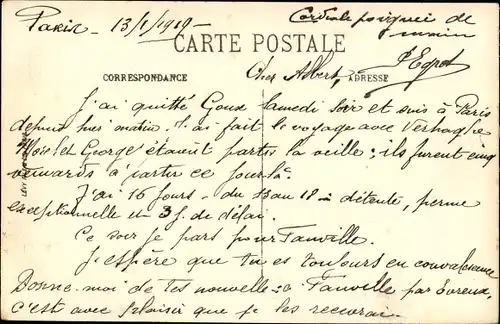 Paris - 13/1/1919 -
Cordiale poignée de
main
CARTE POSTALE
CORRESPONDANCE
Cher Albert,
ADRESSE
J'ai quitté Goux samedi soir et suis à Paris
depuis hier matin. J'ai fait le voyage avec
et George étaient partis la veille ; ils furent cinq
à partir ce jour là.
J'ai 16 jours - du 13 au 18 - détente, perme
exceptionnelle et 3 j. de délai.
Ce soir je pars pour Fauville.
J'espère que tu es toujours en convalescence
Donne-moi de tes nouvelles à Fauville par Evreux,
c'est avec plaisir que je les recevrai.